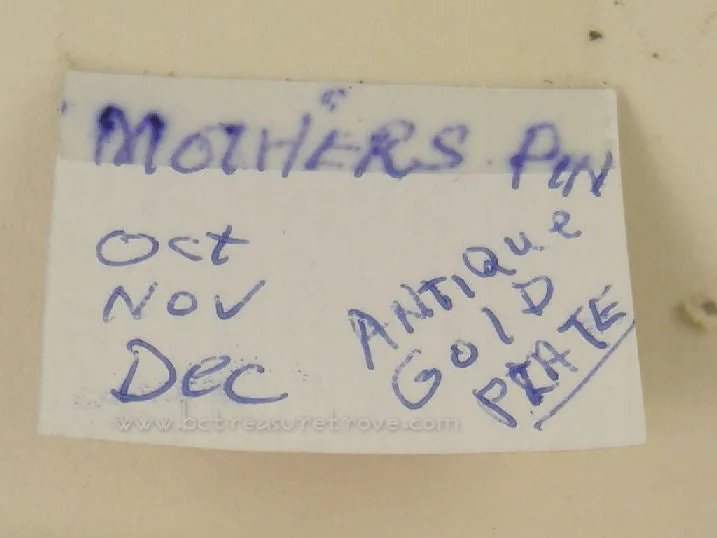 MOTHERS PIN
Oct
Nov
Dec
ANTIQUE
GOLD
PLATE
www.bctreasuretrove.com